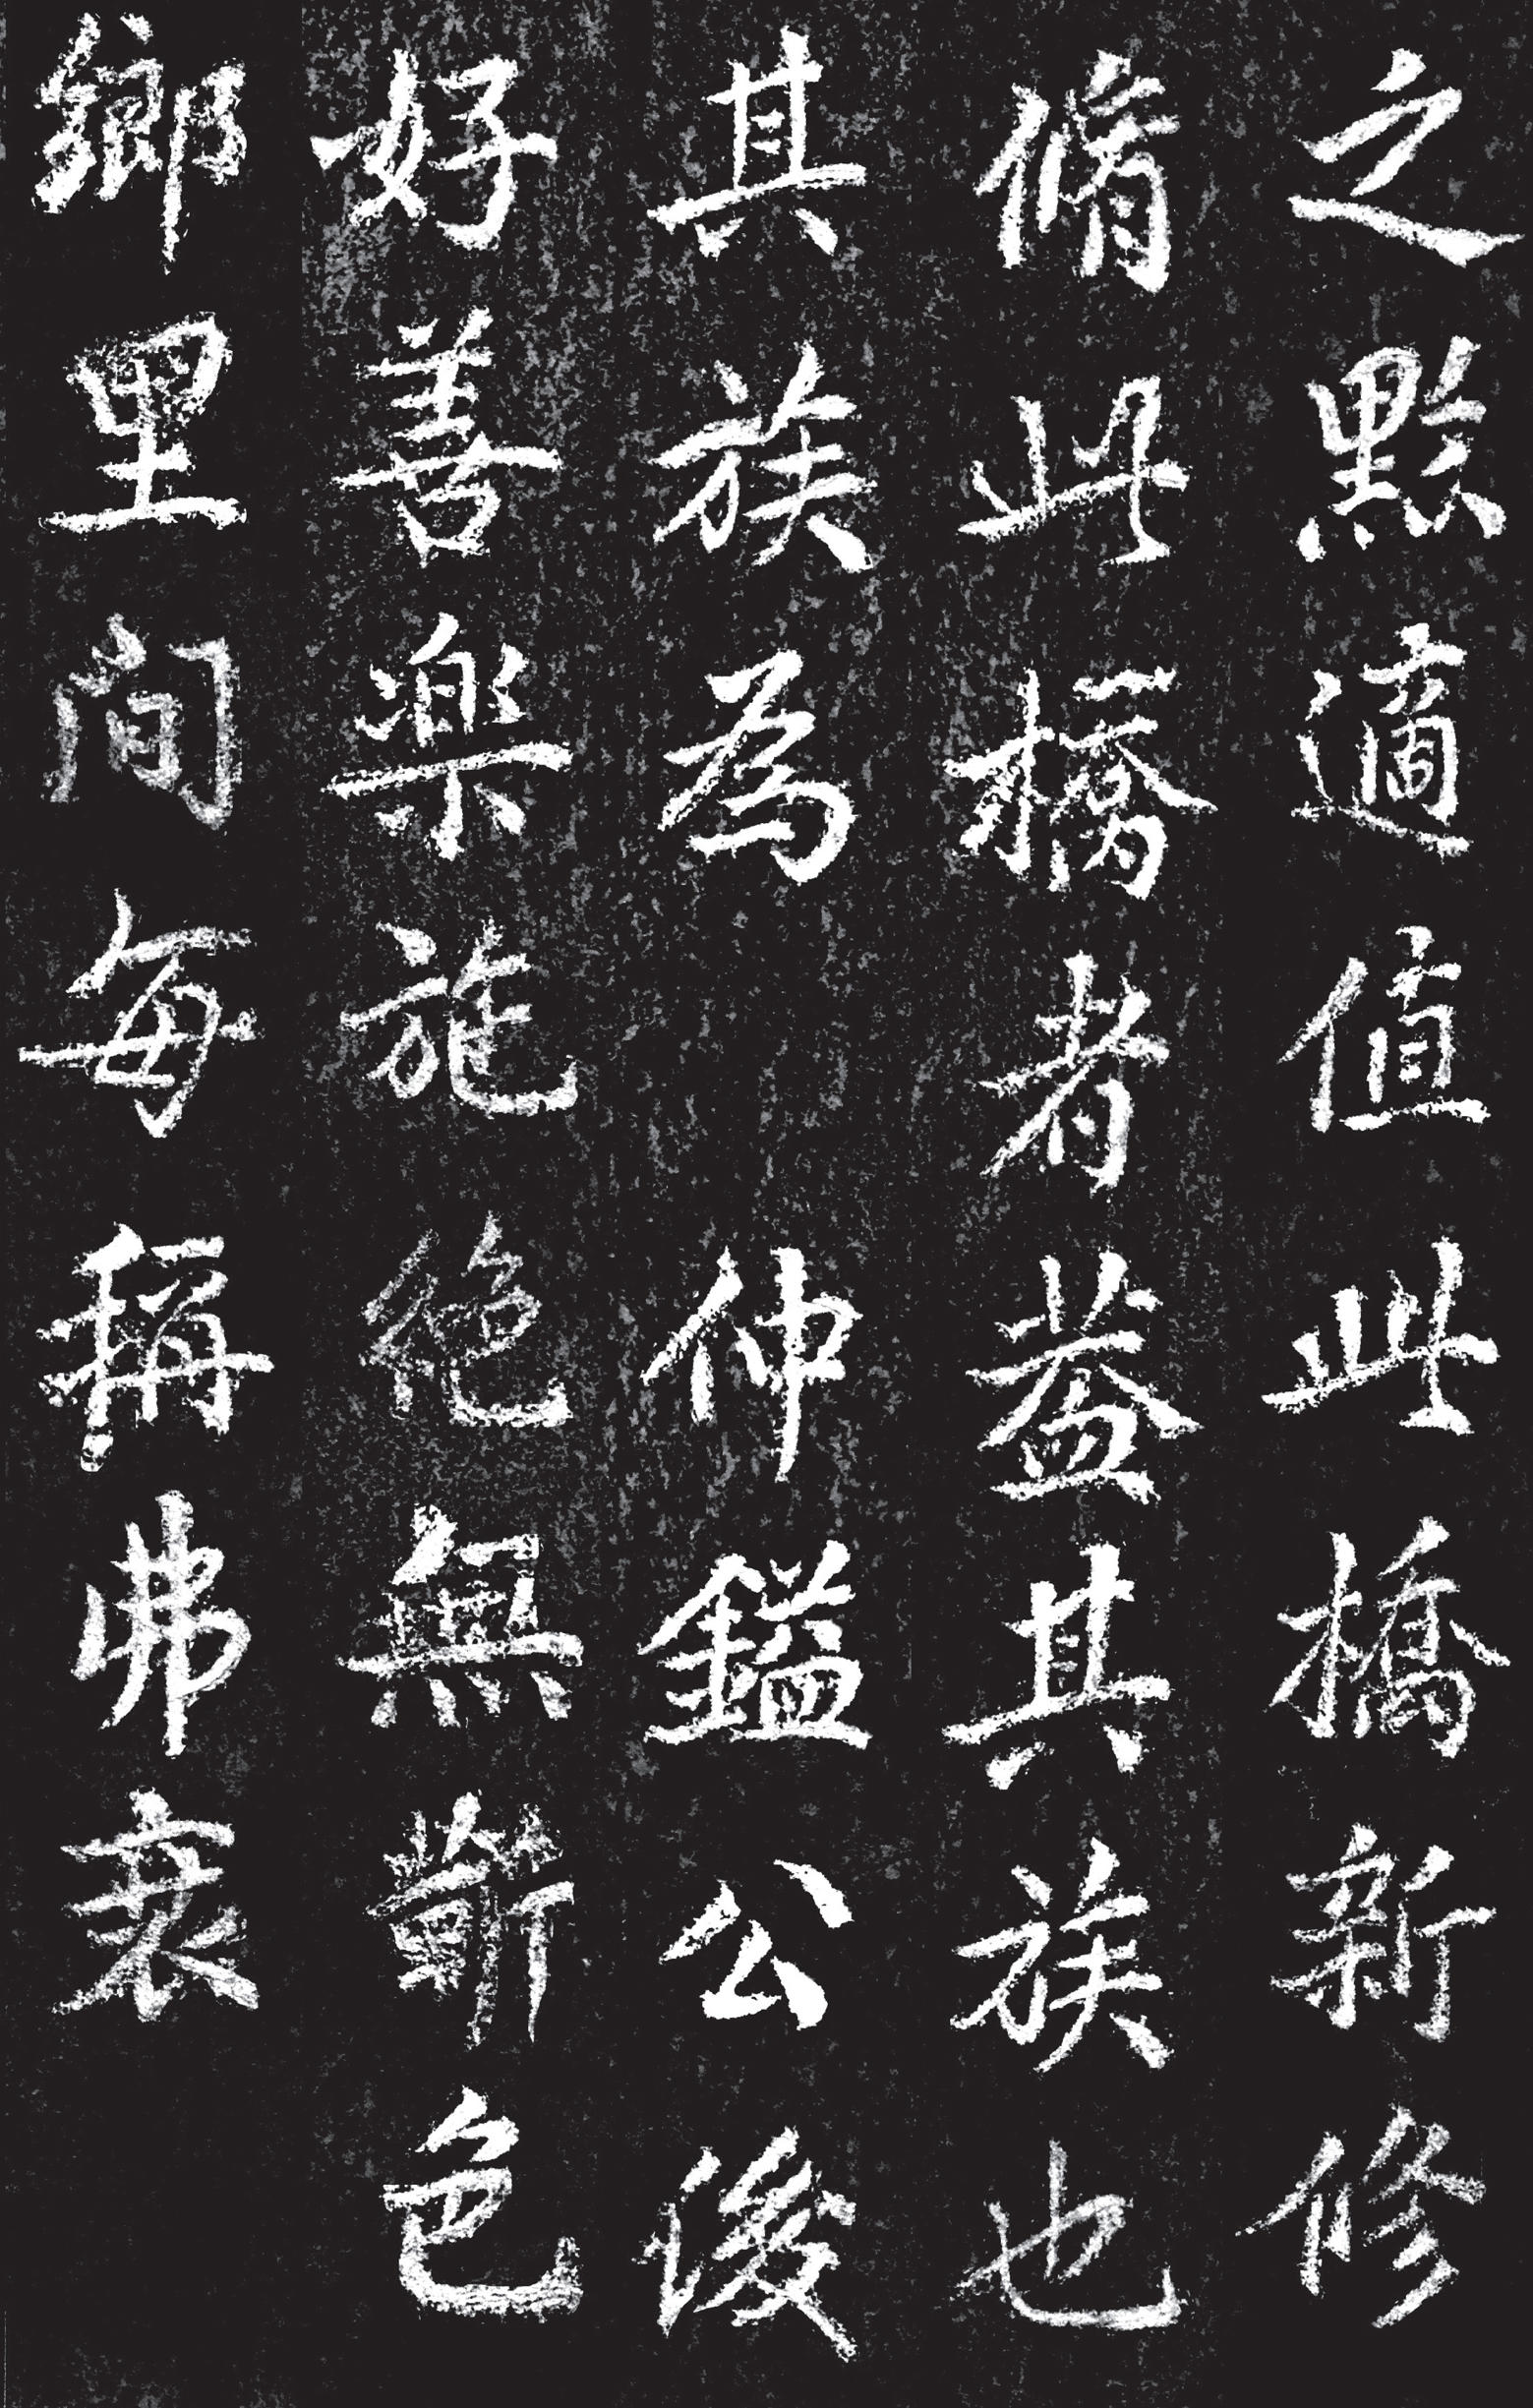 之黟適值此橋新修
脩此橋者葢其族也
其族為仲鎰公後
好善樂施絕無蘄色
鄉里間每稱弗衰